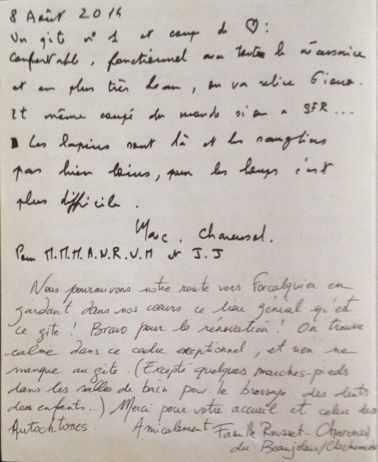 8 Août 2014
Un gîte n° 1 et coup de ♡ :
Confortable, fonctionnel avec toute le nécessaire
et en plus très beau, on va relire Giono.
Et même coupé du monde si on a SFR...
Les lapins sont là et les sangliers
pas bien loins, pour les loups c'est
plus difficile.
Marc
Pour M.M.M.A.V.R.V.M et J.J
Nous poursuivons notre route vers Forcalquier en
gardant dans nos cœurs ce lieu génial qu'est
ce gite ! Bravo pour la rénovation ! On trouve
calme dans ce cadre exceptionnel, et rien ne
manque au gite. (Excepté quelques marches-pieds
dans les salles de bain pour le brossage des dents
des enfants...) Merci pour votre accueil et celui des
Autochtones. Amicalement Famille Rousset-
du Beaujolais/